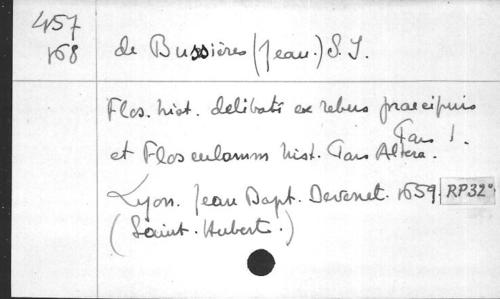 457
168
de Bussières (Jean.) S. J.
Flos. hist. delibati ex rebus praecipuis
Pars 1.
et Flosculorum hist. Pars Altera.
Lyon. Jean Bapt. Devenet. 1659. RP32°
(Saint. Hubert.)